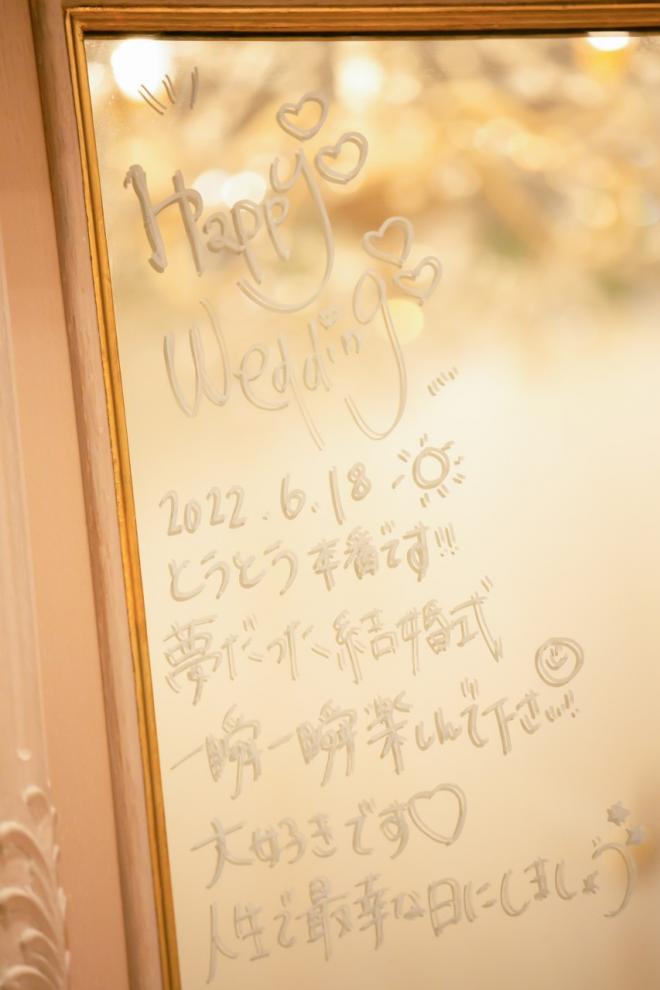 Happy
Wedding
2022.6.18
とうとう本番です!!!
夢だった結婚式
一瞬一瞬楽しんで下さい!!
大好きです♡
人生で最幸な日にしましょう